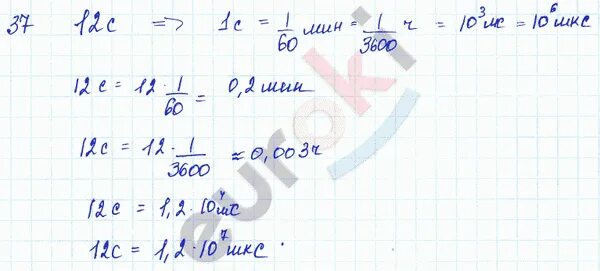 37 12с => 1с = 1/60 мин = 1/3600 ч = 10³ мс = 10⁶ мкс
12с = 12 · 1/60 = 0,2 мин
12с = 12 · 1/3600 ≈ 0,003ч
12с = 1,2 · 10⁴ мс
12с = 1,2 · 10⁷ мкс
euroki